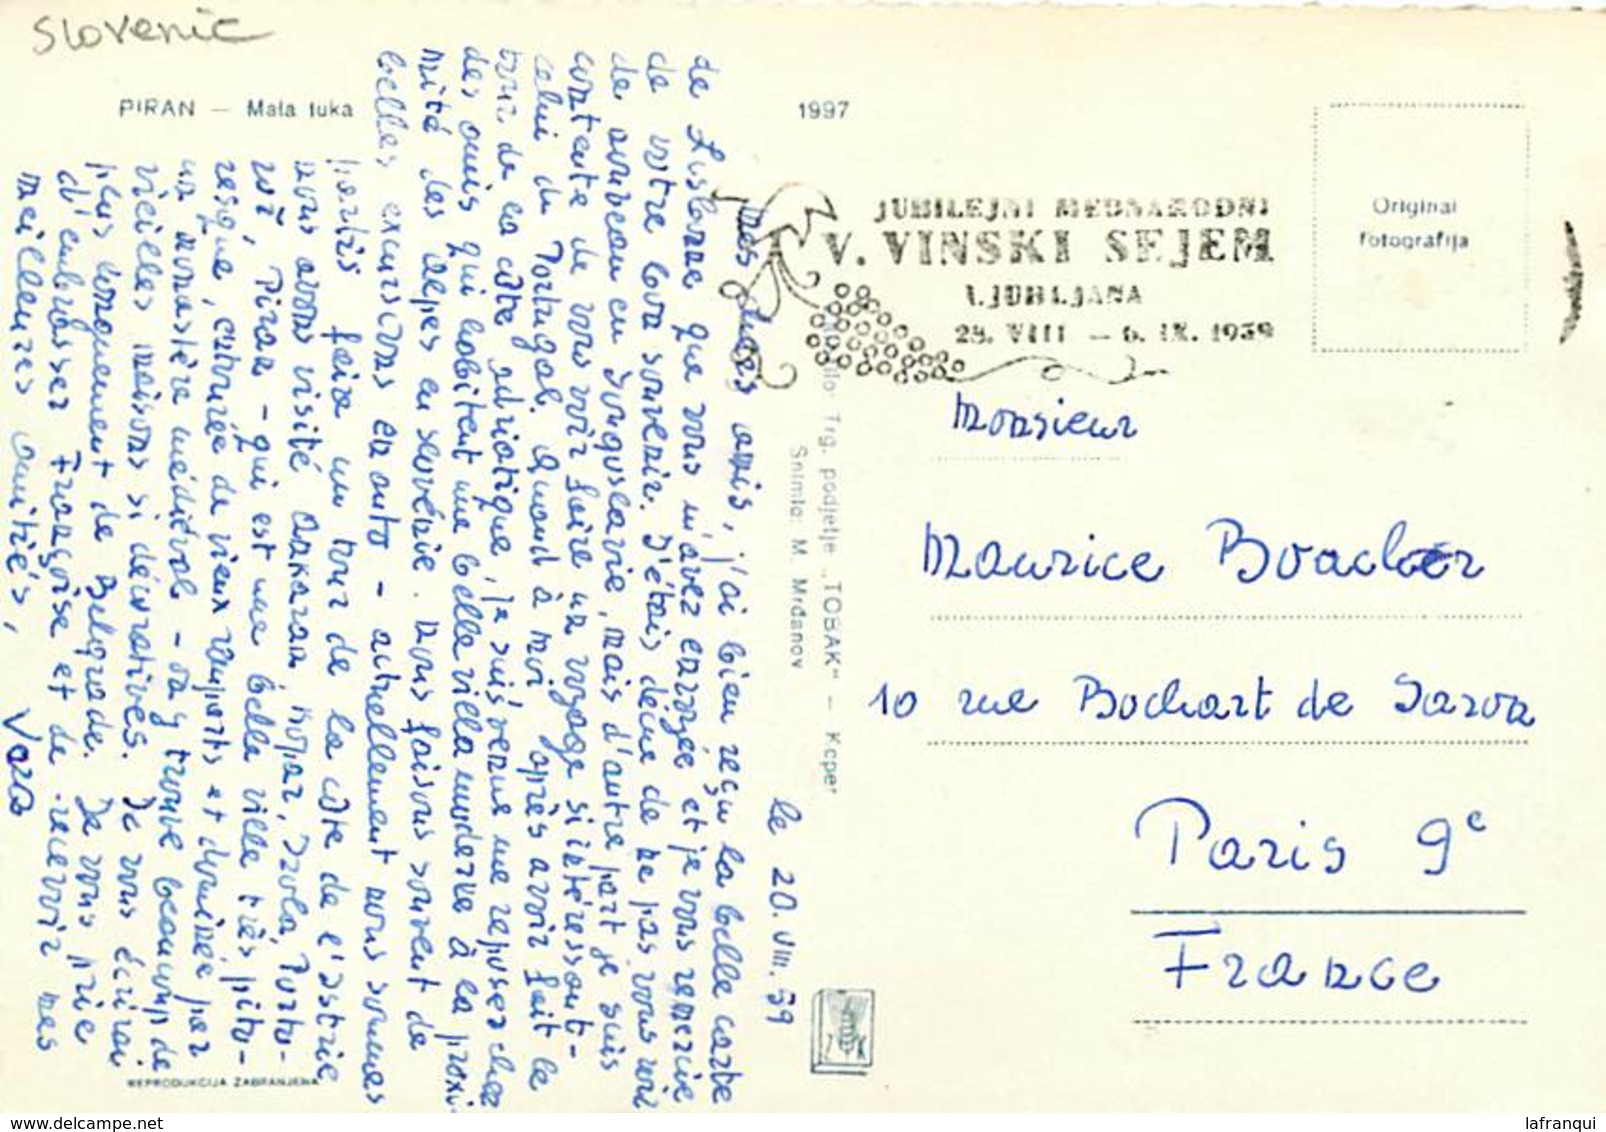 Slovenie
PIRAN — Mala luka
1997
JUBILEJNI MEDNARODNI
V. VINSKI SEJEM
LJUBLJANA
28. VIII — 6. IX. 1959
Original
fotografija
Trg. podjetje „TOBAK" — Koper
Snimio: M. Mrđanov
le 20. VIII. 59
Mes chers amis, j'ai bien reçu la belle carte
de Lisbonne que vous m'avez envoyée et je vous remercie
de votre bon souvenir. J'étais déçue de ne pas vous voir
de nouveau en Yougoslavie, mais d'autre part je suis
contente de vous voir faire un voyage si intéressant -
celui du Portugal. Quand à moi après avoir fait le
tour de la côte adriatique, je suis venue me reposer chez
des amis qui habitent une belle villa moderne à la proxi-
mité des Alpes en Slovénie. Nous faisons souvent de
belles excursions en auto - actuellement nous sommes
partis faire un tour de la côte de l'Istrie
nous avons visité Ankaran, Koper, Izola, Porto-
rož, Piran - qui est une belle ville très pitto-
resque, entourée de vieux remparts et dominée par
un monastère médiéval - on y trouve beaucoup de
vieilles maisons si décoratives. Je vous écrirai
plus longuement de Belgrade. Je vous prie
d'embrasser Françoise et de recevoir mes
meilleures amitiés, Vava
REPRODUKCIJA ZABRANJENA
Monsieur
Maurice Bouchor
10 rue Bochart de Saron
Paris 9e
France
lafranqui